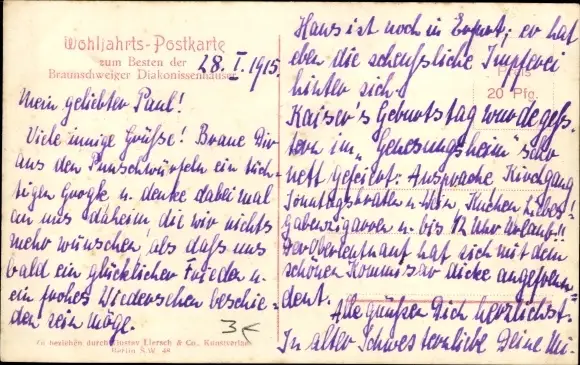 Wohlfahrts-Postkarte
zum Besten der
Braunschweiger Diakonissenhäuser.
28. I. 1915.
Mein geliebter Paul!
Viele innige Grüße! Braue Dir
aus den Punschwürfeln ein tüch-
tigen Grogk u. denke dabei mal
an uns daheim die wir nichts
mehr wünschen, als daß uns
bald ein glücklicher Frieden u.
ein frohes Wiedersehen beschie-
den sein möge.
3€
Zu beziehen durch Gustav Liersch & Co., Kunstverlag
Berlin S.W. 48
Hans ist noch in Erfurt; er hat
eben die scheußliche Impferei
hinter sich.
Preis
20 Pfg.
Kaiser's Geburtstag wurde ges-
tern im „Genesungsheim" sehr
nett gefeiert. Ansprache Kirchgang
Sonntagsbraten u. Wein, Kuchen Liebes-
Gabenzigarren u. bis 12 Uhr Urlaub!!
Der Oberleutnant hat sich mit dem
schönen Kommissar dicke angefreun-
det.
Alle grüßen Dich herzlichst.
In alter Schwesterliebe Deine Mi-